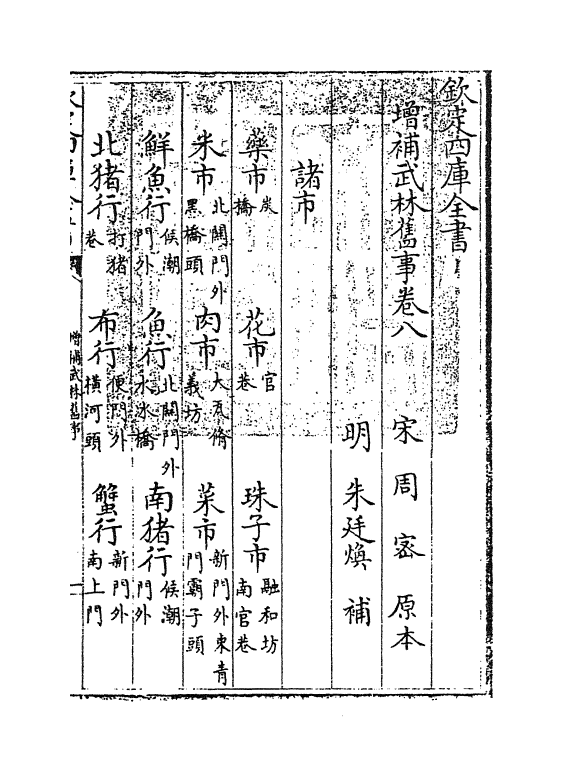 欽定四庫全書
增補武林舊事卷八
宋 周密 原本
明 朱廷煥 補
諸市
藥市 炭橋 花市 官巷 珠子市 融和坊南官巷
米市 北關門外黑橋頭 肉市 大瓦脩義坊 菜市 新門外東青門霸子頭
鮮魚行 候潮門外 魚行 北關門外水冰橋 南猪行 候潮門外
北猪行 打猪巷 布行 便門外橫河頭 蟹行 新門外南上門
增補武林舊事
一